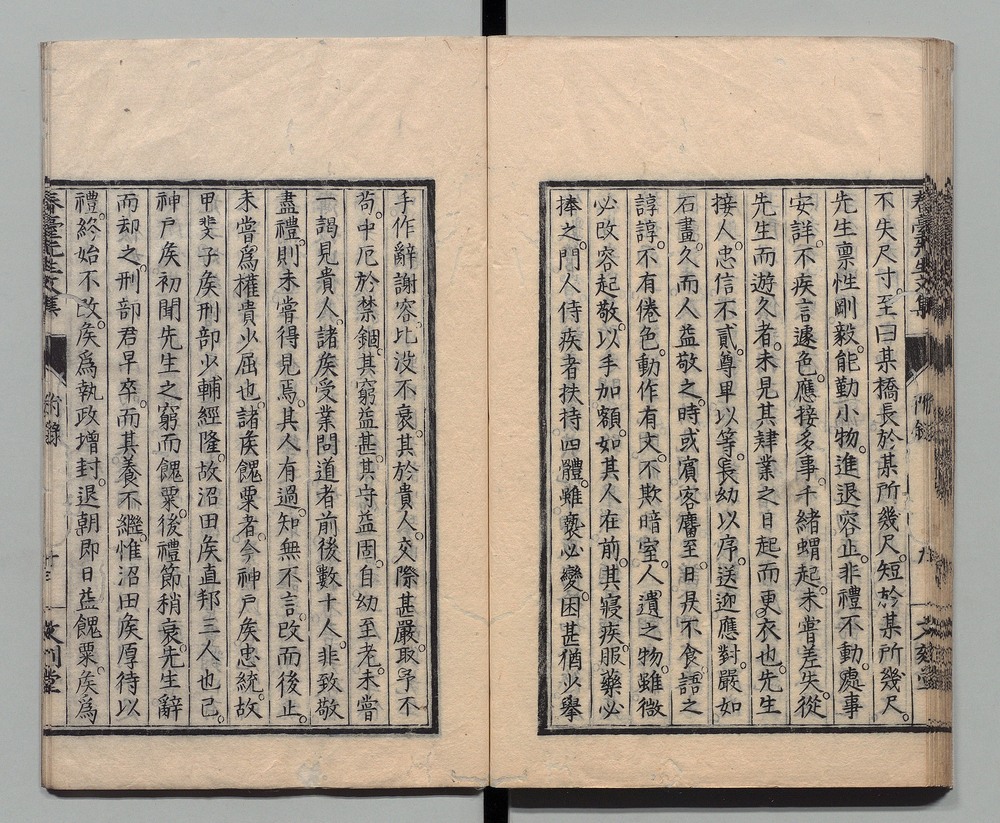 不失尺寸。至曰某橋長於某所幾尺。短於某所幾尺。
先生禀性剛毅。能勤小物。進退容止。非禮不動。處事
安詳。不疾言遽色。應接多事。千緒蝟起。未嘗差失。從
先生而遊久者。未見其肄業之日起而更衣也。先生
接人忠信不貳。尊卑以等。長幼以序。送迎應對。嚴如
石畫。久而人益敬之。時或賓客麕至。日昃不食。語之
諄諄。不有倦色。動作有文。不欺暗室。人遺之物。雖微
必改容起敬。以手加額。如其人在前。其寢疾。服藥必
捧之。門人侍疾者扶持四體。雖褻必變。因甚猶少舉
手作辭謝容。比沒不衰。其於貴人。交際甚嚴。取予不
苟。中厄於禁錮。其窮益甚。其守益固。自幼至老。未嘗
一謁見貴人。諸侯受業問道者前後數十人。非致敬
盡禮。則未嘗得見焉。其人有過。知無不言。改而後止。
未嘗爲權貴少屈也。諸侯餽粟者。今神戶侯忠統。故
甲斐子侯刑部少輔經隆。故沼田侯直邦三人也已。
神戶侯初聞先生之窮而餽粟。後禮節稍衰。先生辭
而却之。刑部君早卒。而其養不繼。惟沼田侯厚待以
禮。終始不改。侯爲執政增封。退朝即日益餽粟。侯爲
春臺先生文集
附錄